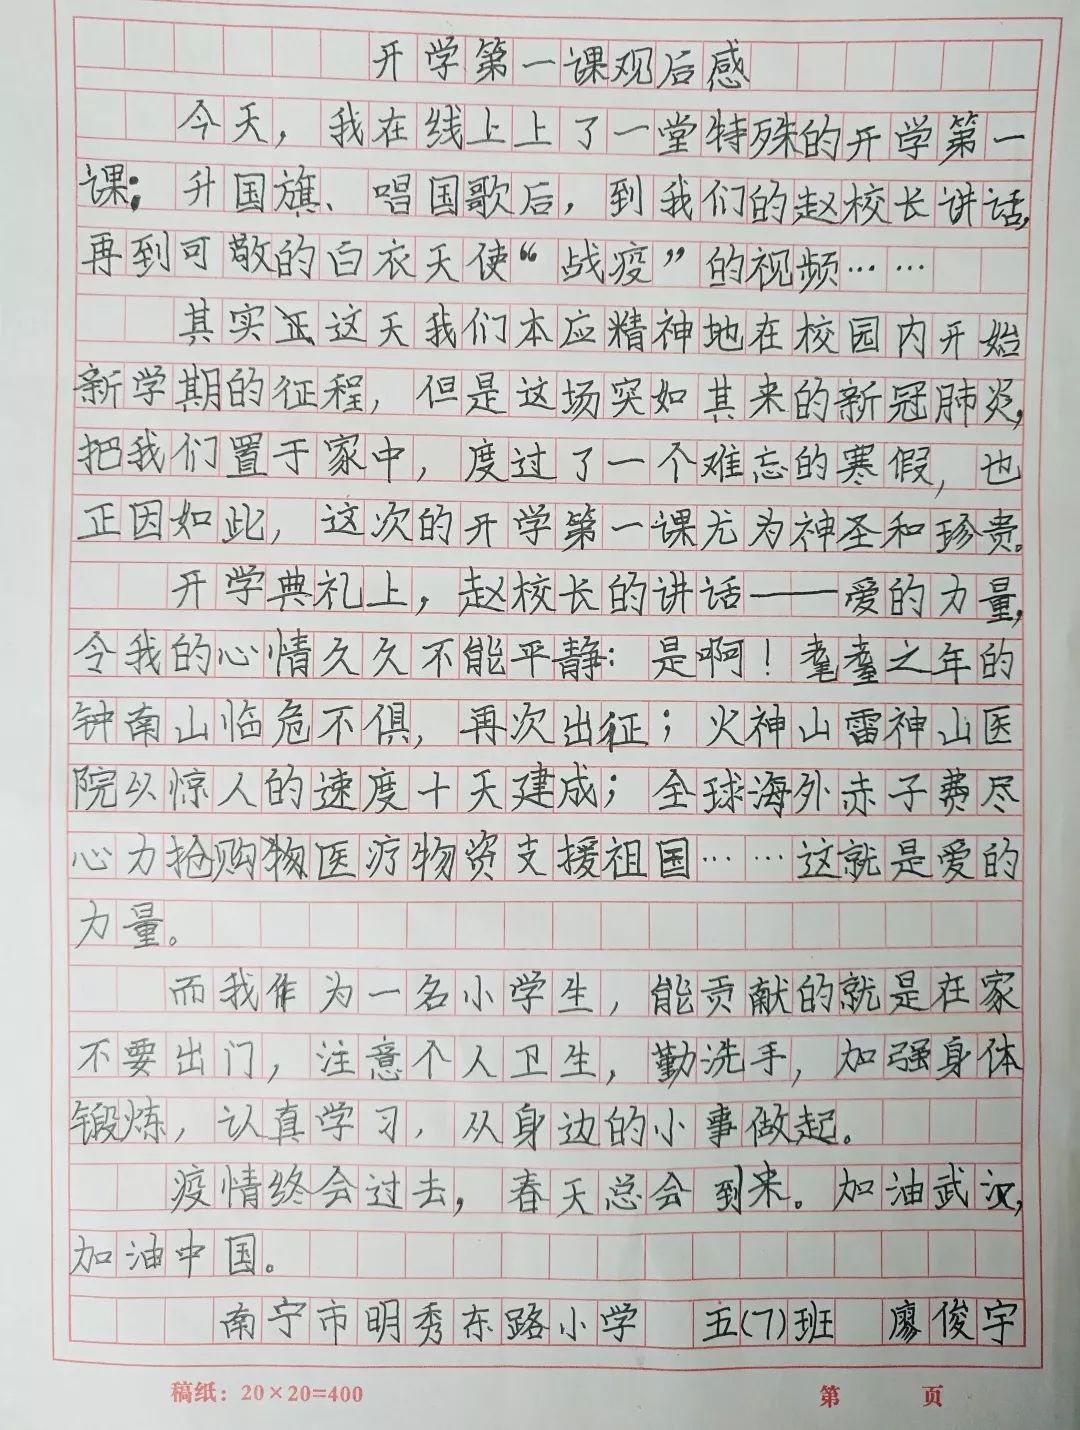 开学第一课观后感
今天，我在线上上了一堂特殊的开学第一
课；升国旗、唱国歌后，到我们的赵校长讲话，
再到可敬的白衣天使“战疫”的视频……
其实这天我们本应精神地在校园内开始
新学期的征程，但是这场突如其来的新冠肺炎，
把我们置于家中，度过了一个难忘的寒假，也
正因如此，这次的开学第一课尤为神圣和珍贵。
开学典礼上，赵校长的讲话——爱的力量，
令我的心情久久不能平静：是啊！耄耋之年的
钟南山临危不俱，再次出征；火神山雷神山医
院以惊人的速度十天建成；全球海外赤子费尽
心力抢购物医疗物资支援祖国……这就是爱的
力量。
而我作为一名小学生，能贡献的就是在家
不要出门，注意个人卫生，勤洗手，加强身体
锻炼，认真学习，从身边的小事做起。
疫情终会过去，春天总会到来。加油武汉，
加油中国。
南宁市明秀东路小学 五(7)班 廖俊宇
稿纸：20×20=400 第 页